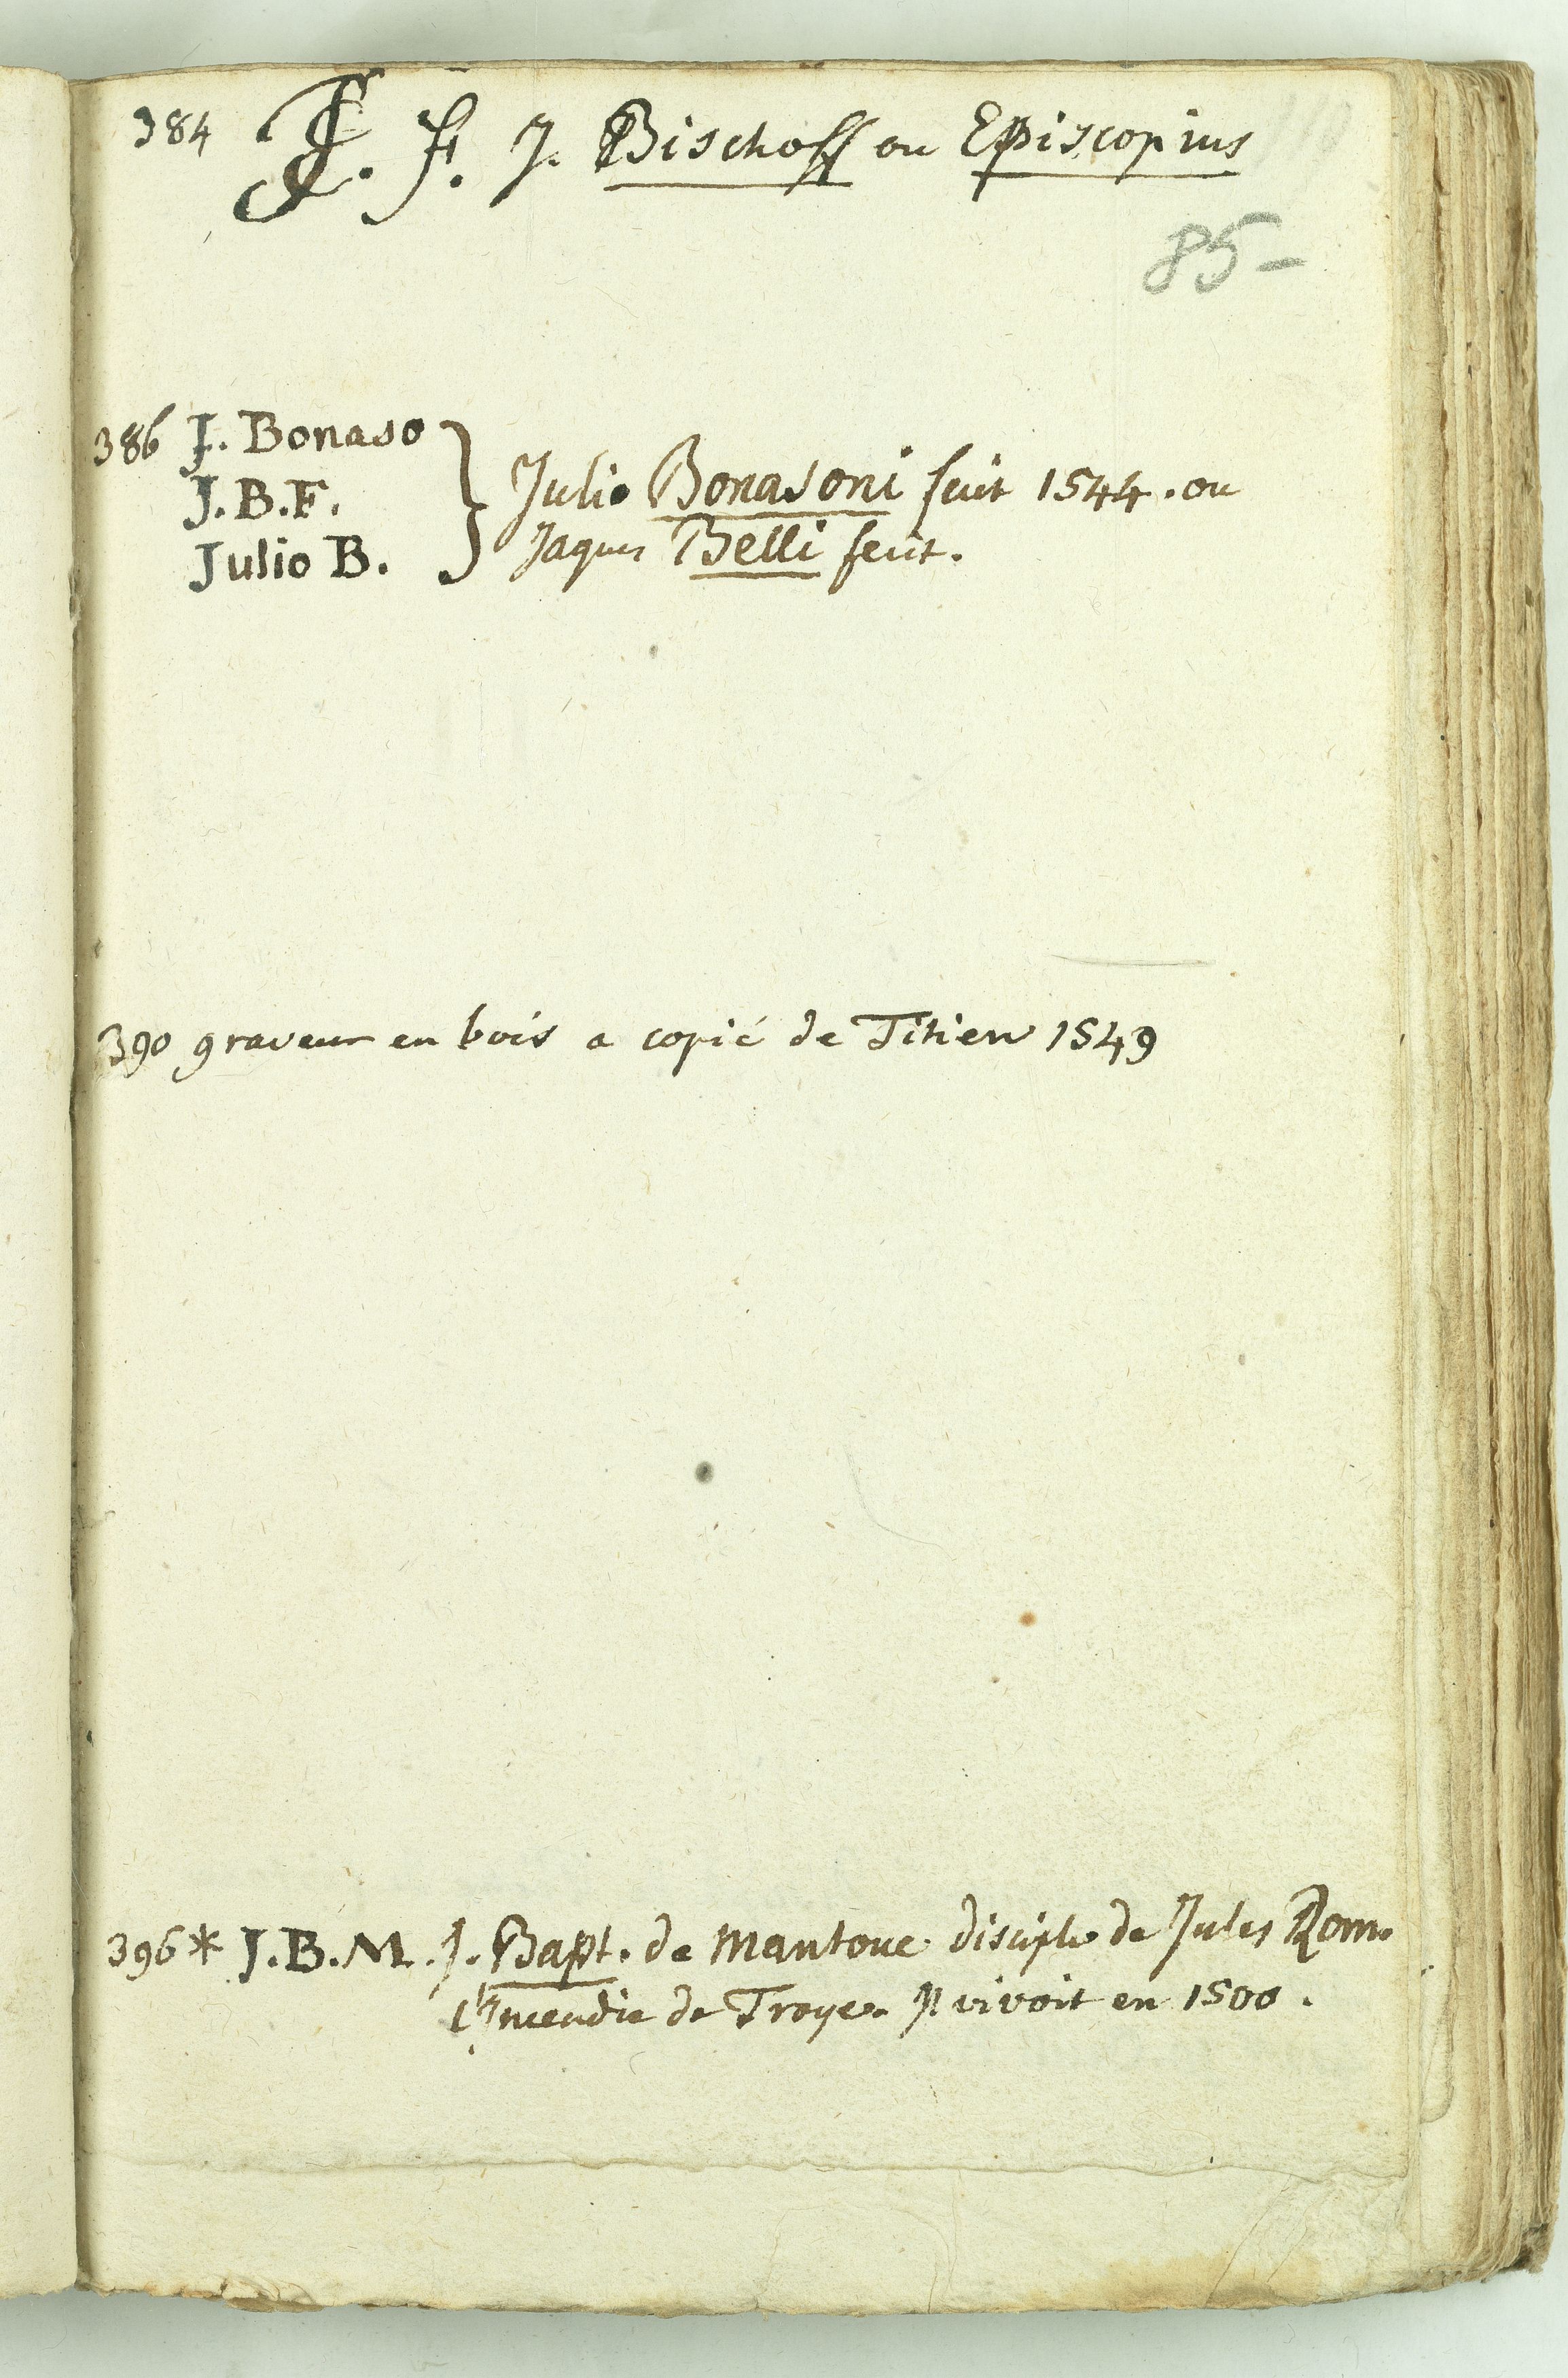 384 JE. F. J. Bischoff ou Episcopius
85-
386 J. Bonaso
J.B.F.
Julio B.
Julio Bonasoni fecit 1544. ou
Jaques Belli fecit.
390 graveur en bois a copié de Titien 1549
396* J.B.M. J. Bapt. de Mantoue disciple de Jules Rom.
l'Incendie de Troye. Il vivoit en 1500.